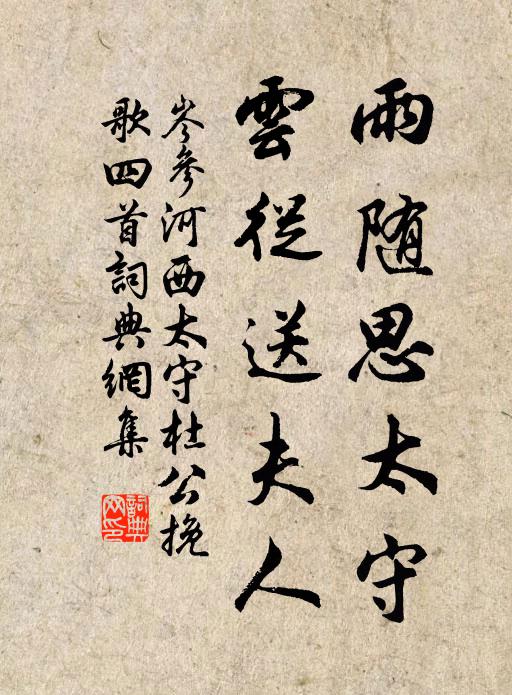 雨随思太守
雲從送夫人
岑參河西太守杜公挽
歌四首詞典網集
詞典網印